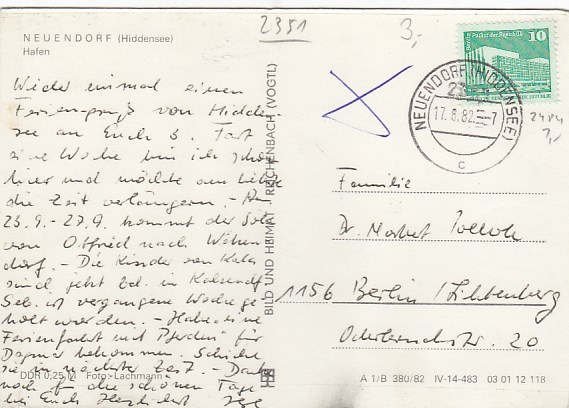 NEUENDORF (Hiddensee)
Hafen
2351
3,-
Berlin, Palast der Republik 10
NEUENDORF (HIDDENSEE)
17. 8. 82 - 7
c
Wieder einmal einen
Feriengruß von Hidden-
see an Euch 3. Fast
eine Woche bin ich schon
hier und möchte am liebsten
die Zeit verlängern. - Am
23.9. - 27.9. kommt der
von nach
dorf. - Die Kinder von
sind jetzt
ist vergangene Woche ge-
holt worden. - Habe eine
Ferienfahrt mit Pferden für
Dagmar bekommen. Schicke
sie in nächster Zeit. - Dank
noch für die schönen Tage
bei Euch Herzlichst
BILD UND HEIMAT REICHENBACH (VOGTL)
Familie
Dr. Norbert
1156 Berlin / Lichtenberg
20
DDR 0,25 M Foto: Lachmann
A 1/B 380/82 IV-14-483 03 01 12 118